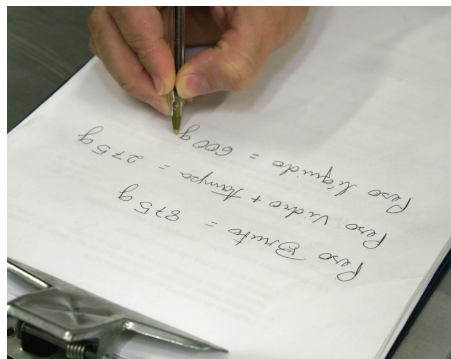 Peso Bruto = 875 g
Peso Vidro + tampa = 275 g
Peso líquido = 600 g